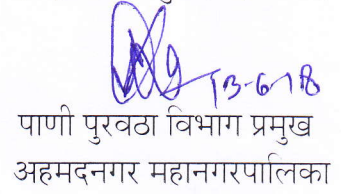 13-6-18
पाणी पुरवठा विभाग प्रमुख
अहमदनगर महानगरपालिका